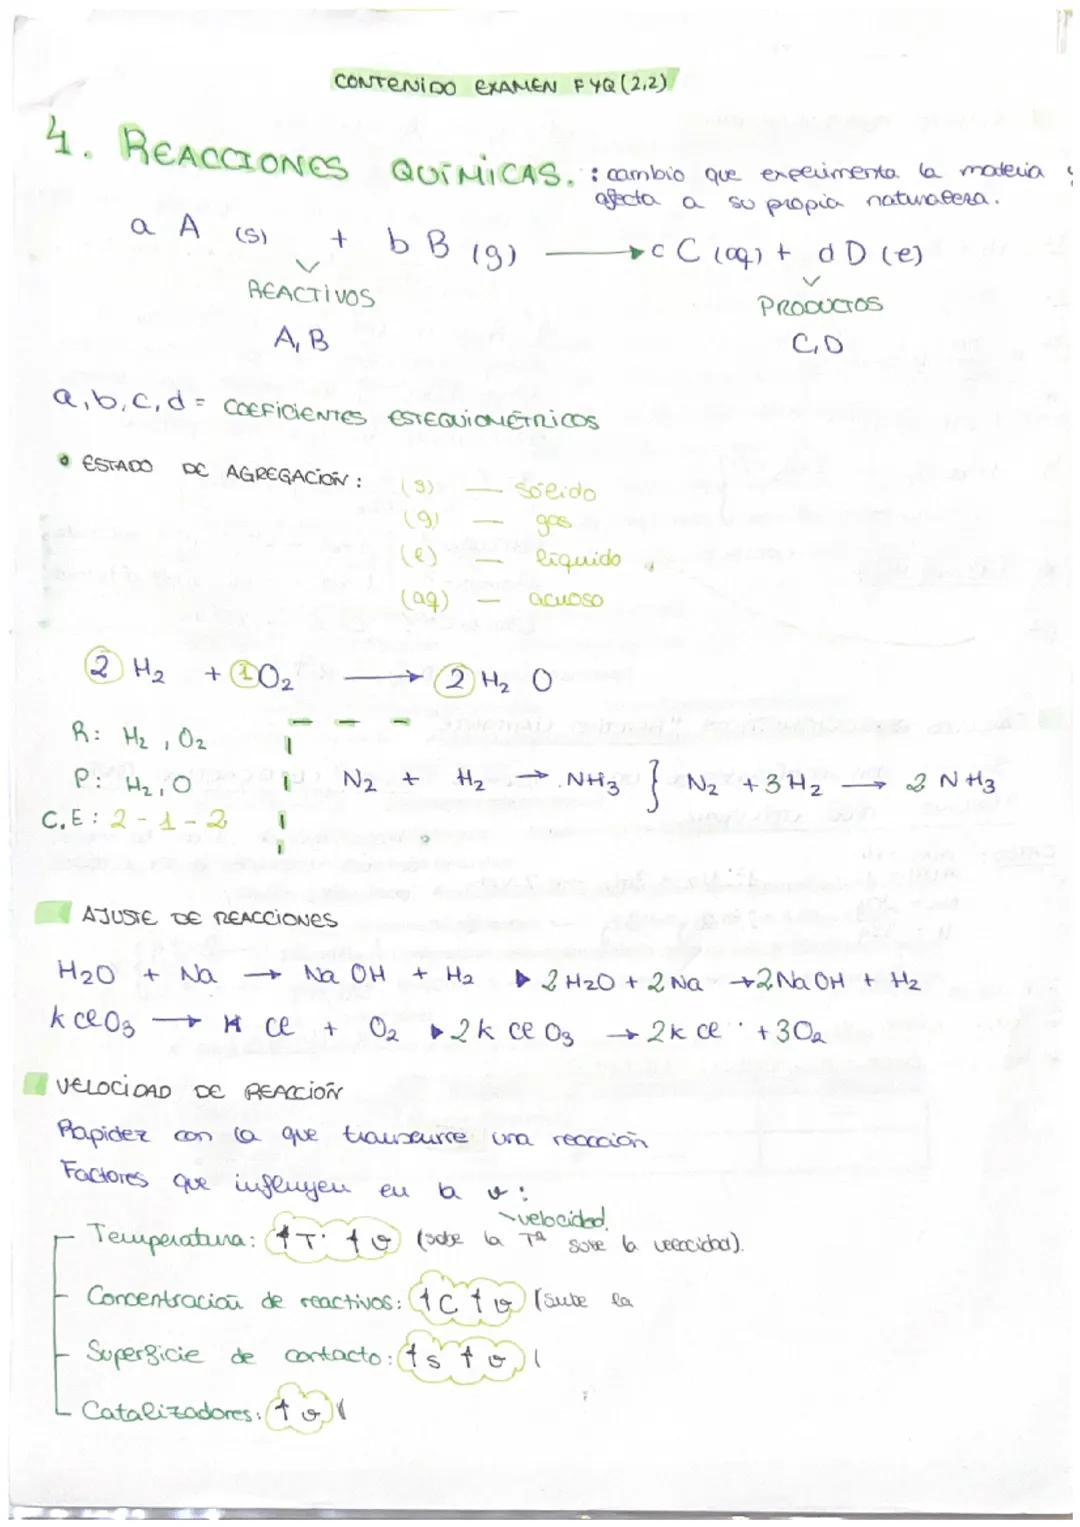 CONTENIDO EXAMEN FYQ (2,2)
4. REACCIONES QUÍMICAS. : cambio que experimenta la materia y
afecta a su propia naturaleza.
a A (s) + b B (g) → c C (aq) + d D (l)
REACTIVOS PRODUCTOS
A, B C, D
a, b, c, d = COEFICIENTES ESTEQUIOMÉTRICOS
• ESTADO DE AGREGACIÓN:
(s) — sólido
(g) — gas
(l) — líquido
(aq) — acuoso
2 H2 + 1 O2 → 2 H2 O
R: H2, O2
P: H2, O
C.E: 2 - 1 - 2
N2 + H2 → NH3 } N2 + 3 H2 → 2 NH3
AJUSTE DE REACCIONES
H2O + Na → Na OH + H2 ▸ 2 H2O + 2 Na → 2 Na OH + H2
k cl O3 → K Cl + O2 ▸ 2 k cl O3 → 2 k cl + 3 O2
VELOCIDAD DE REACCIÓN
Rapidez con la que transcurre una reacción
Factores que influyen en la v:
velocidad.
Temperatura: ↑T. ↑v (sube la Tª sube la velocidad).
Concentración de reactivos: ↑C ↑v (sube la
Superficie de contacto: ↑s ↑v (
Catalizadores: ↑v (